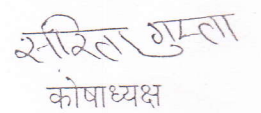 सरिता गुप्ता
कोषाध्यक्ष